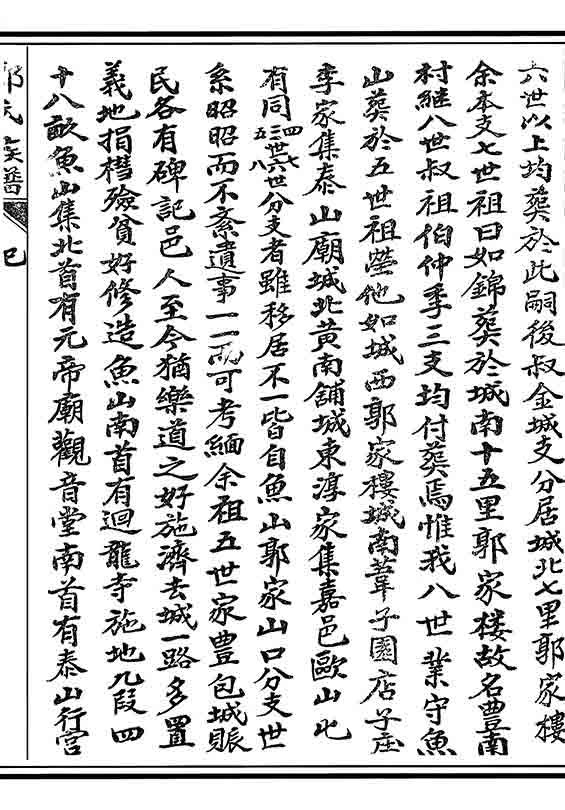 六世以上均葬於此嗣後叔金城支分居城北七里郭家樓
余本支七世祖曰如錦葬於城南十五里郭家楼故名豊南
村継八世叔祖伯仲季三支均付葬焉惟我八世業守魚
山葬於五世祖塋他如城西郭家樓城南葦子園店子庄
李家集泰山廟城北黄南舖城東淳家集嘉邑歐山北
有同三四五世六七八世分支者雖移居不一皆自魚山郭家山口分支世
系昭昭而不紊遺事一一可考緬余祖五世家豊包城賬
民各有碑記邑人至今猶樂道之好施濟去城一路多置
義地捐槥殮貧好修造魚山南首有迴龍寺施地九段四
十八畝魚山集北首有元帝廟觀音堂南首有泰山行宫
郭氏族譜